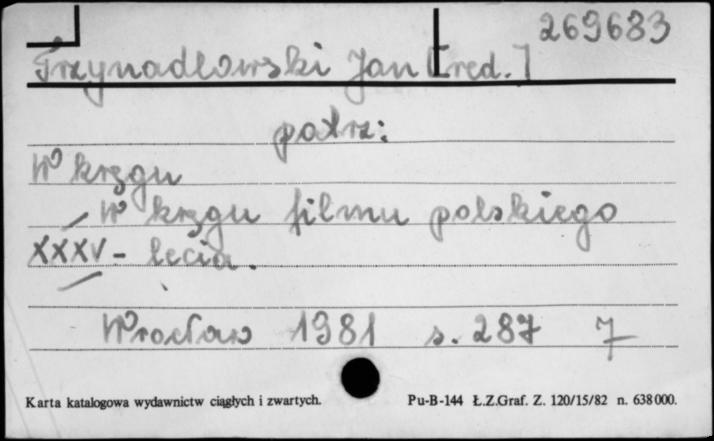 269683
Trzynadlowski Jan [red.]
patrz:
W kręgu
W kręgu filmu polskiego
XXXV-lecia.
Wrocław 1981 s. 287 7
Karta katalogowa wydawnictw ciągłych i zwartych. Pu-B-144 Ł.Z.Graf. Z. 120/15/82 n. 638000.